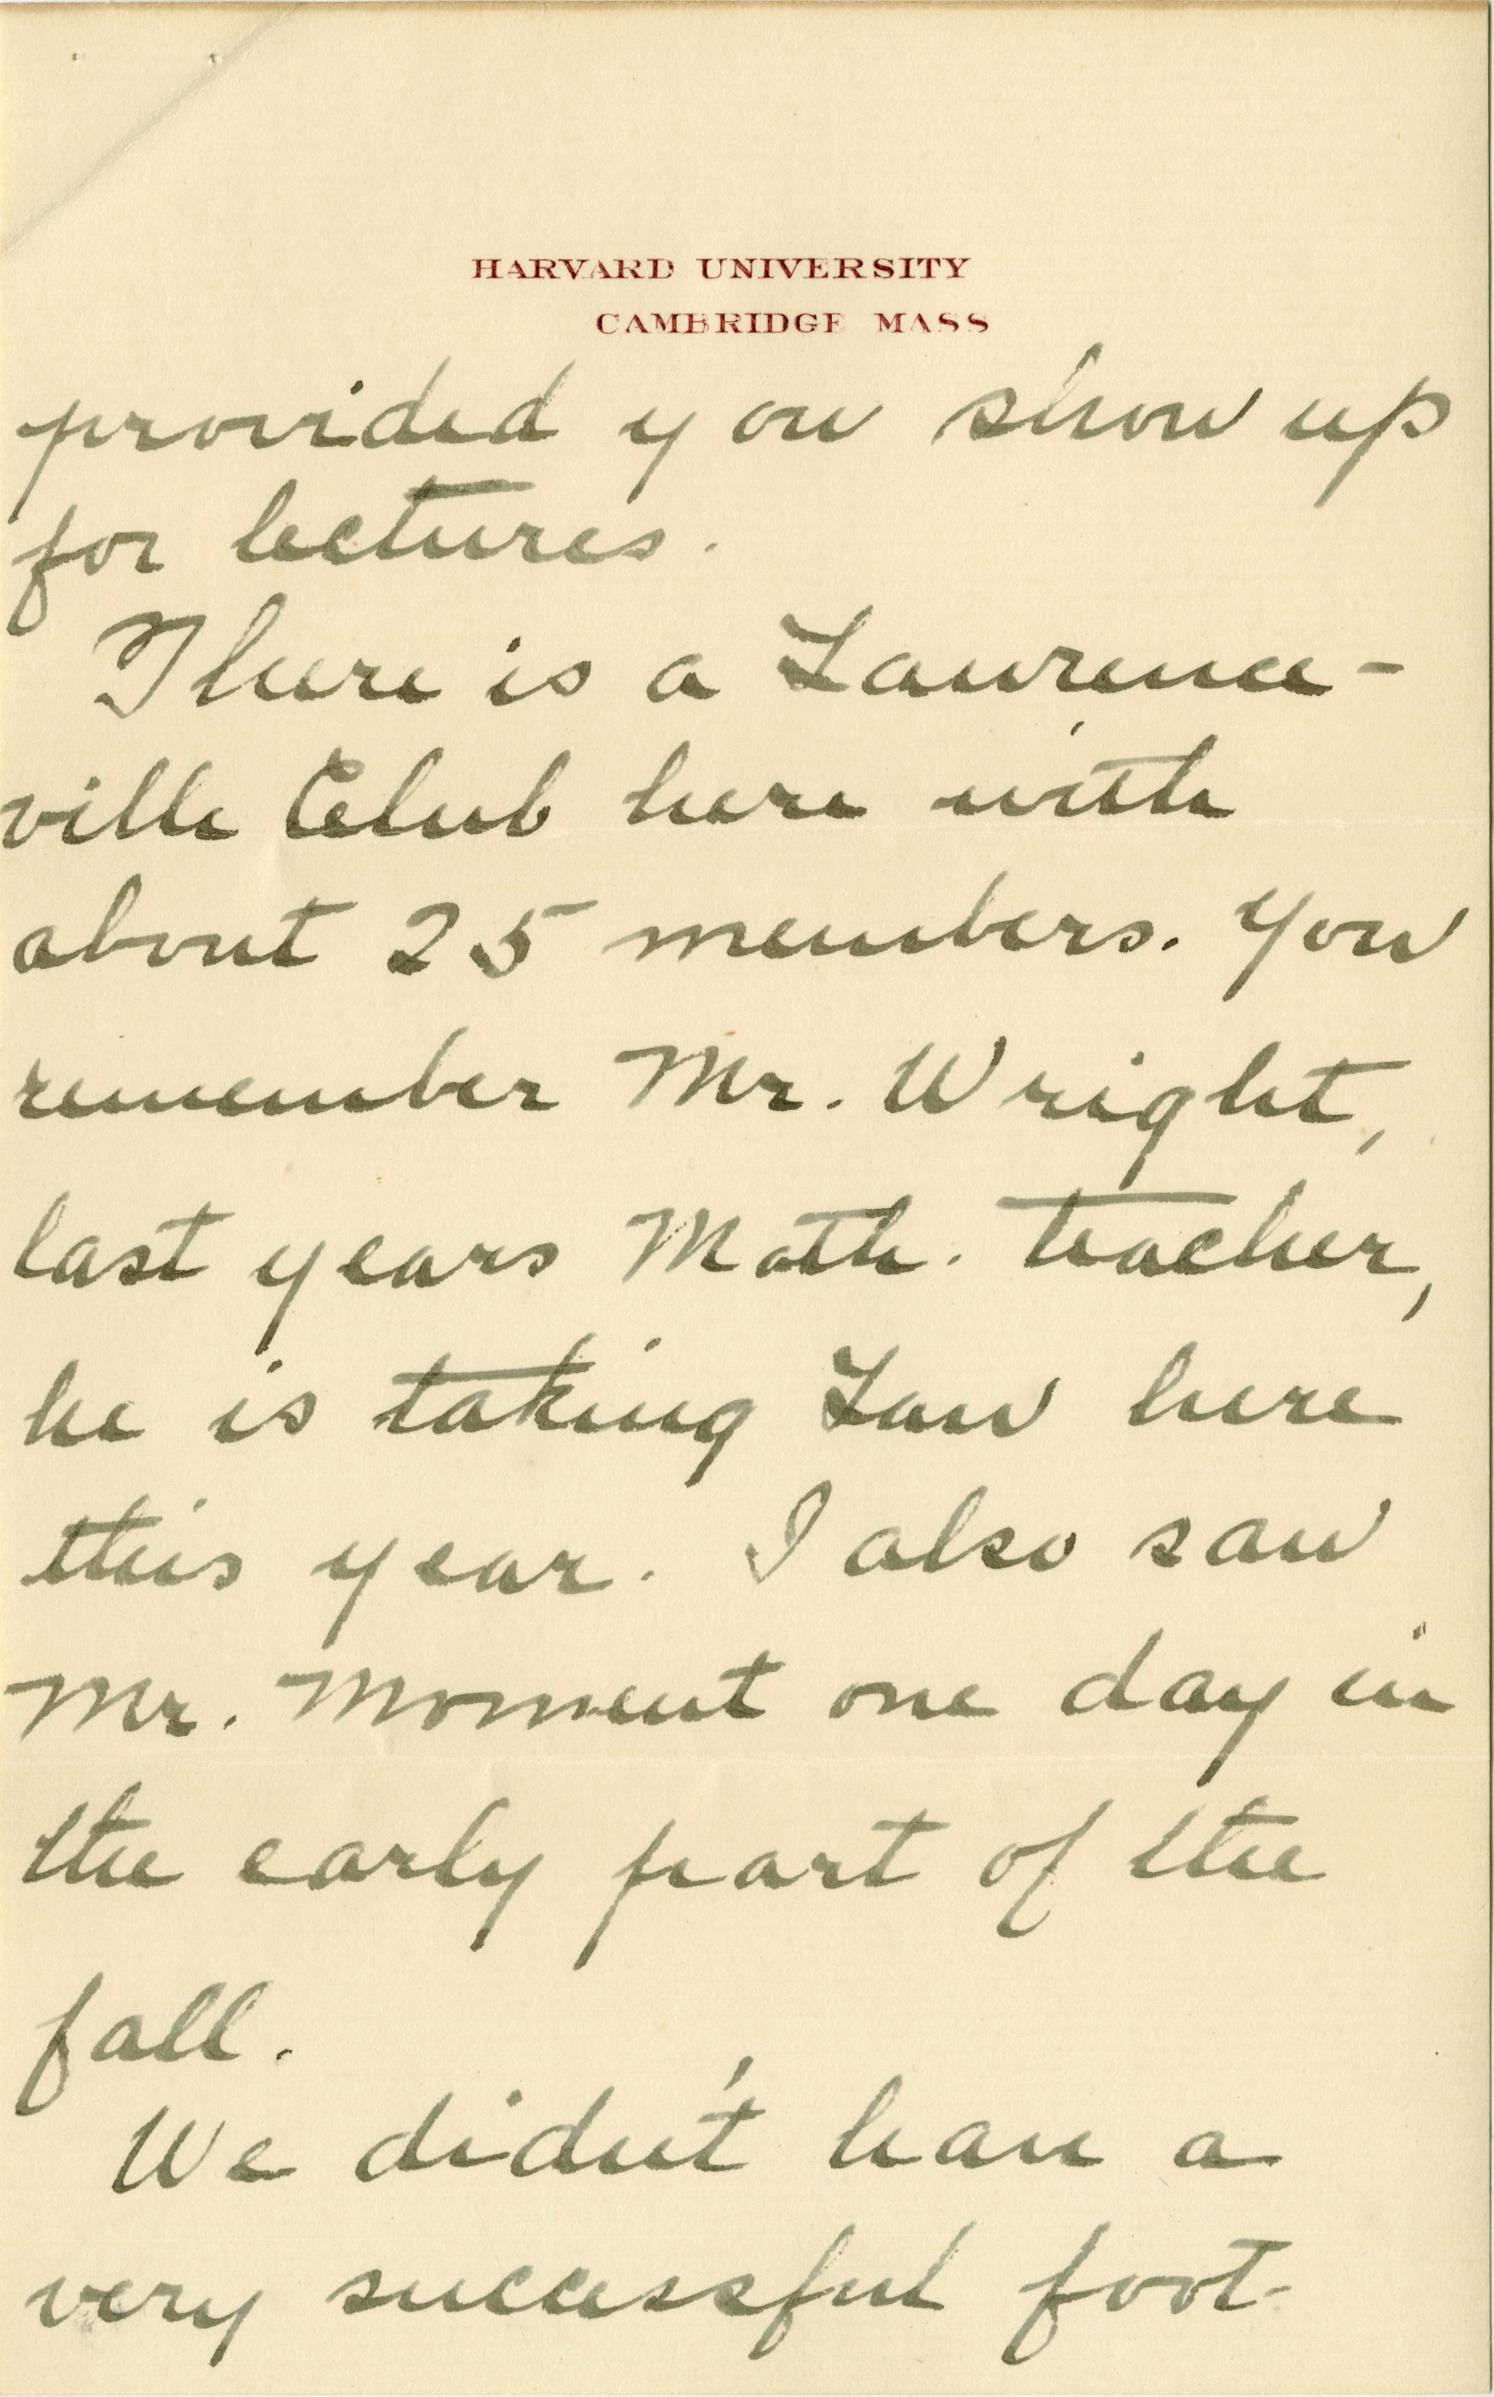 HARVARD UNIVERSITY
CAMBRIDGE MASS
provided you show up
for lectures.
There is a Lawrence-
ville Club here with
about 25 members. You
remember Mr. Wright,
last years Math. teacher,
he is taking Law here
this year. I also saw
Mr. Moment one day in
the early part of the
fall.
We didn't have a
very successful foot-